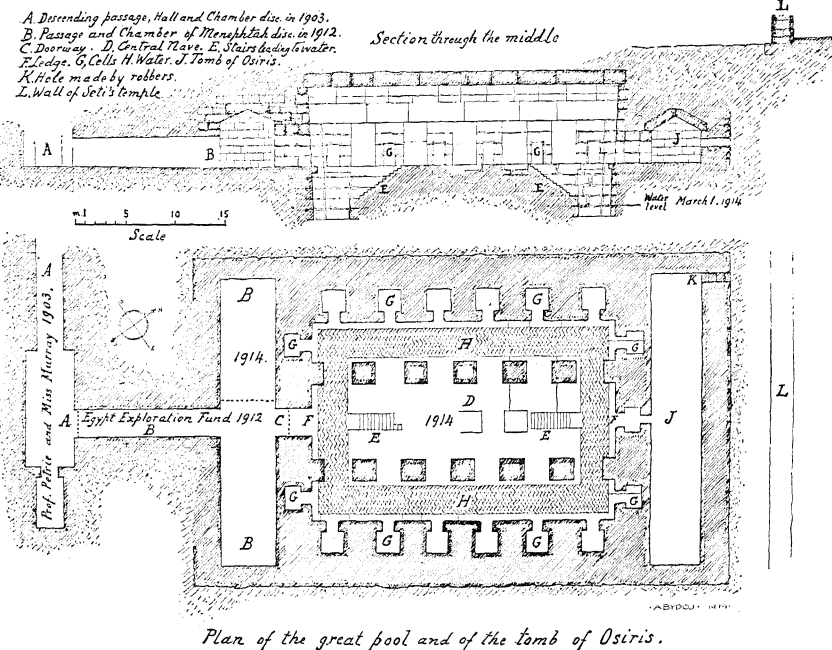 A. Descending passage, Hall and Chamber disc. in 1903.
B. Passage and Chamber of Menephtah disc. in 1912.
C. Doorway. D, Central Nave. E, Stairs leading to water.
F. Ledge. G, Cells H. Water. J. Tomb of Osiris.
K. Hole made by robbers.
L. Wall of Seti's temple
Section through the middle
L
A
B
G
G
J
E
E
Water level March 1. 1914
m.1 5 10 15
Scale
A
Prof. Petrie and Miss Murray 1903.
A
B
1914.
Egypt Exploration Fund 1912
B
C
F
B
G
G
G
G
H
D
1914
E
E
F
J
K
L
H
G
G
G
G
ABYDOS. 1914.
Plan of the great pool and of the tomb of Osiris.